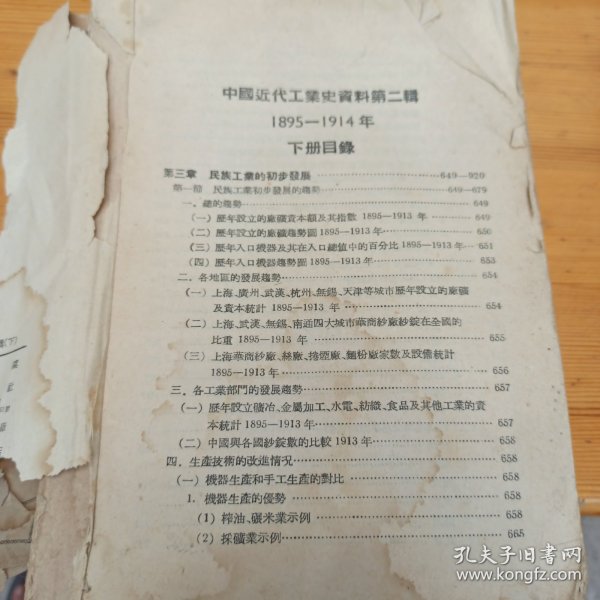 中國近代工業史資料第二輯
1895—1914年
下册目錄
第三章 民族工業的初步發展 649—920
第一節 民族工業初步發展的趨勢 649—679
一、總的趨勢 649
(一)歷年設立的廠礦資本額及其指數 1895—1913 年 649
(二)歷年設立的廠礦趨勢圖1895—1913 年 651
(三)歷年入口機器及其在入口總值中的百分比1895—1913年 651
(四)歷年入口機器趨勢圖1895—1913 年 653
二、各地區的發展趨勢 654
(一)上海、廣州、武漢、杭州、無錫、天津等城市歷年設立的廠礦
及資本統計 1895—1913 年 654
(二)上海、武漢、無錫、南通四大城市華商紗廠紗錠在全國的
比重 1895—1913 年 655
(三)上海華商紗廠、絲廠、捲煙廠、麵粉廠家數及設備統計
1895—1913年 656
三、各工業部門的發展趨勢 657
(一)歷年設立礦冶、金屬加工、水電、紡織、食品及其他工業的資
本統計1895—1913年 657
(二)中國與各國紗錠數的比較 1913 年 658
四、生產技術的改進情况 658
(一)機器生產和手工生產的對比 658
1. 機器生產的優勢 658
(1)榨油、碾米業示例 658
(2)採礦業示例 665
孔夫子旧书网
www.kongfz.com